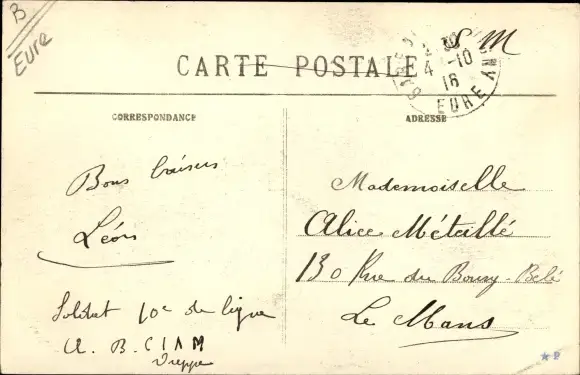 B
Eure
S M
CARTE POSTALE
4 -10
16
EURE
CORRESPONDANCE
ADRESSE
Bons baisers
Léon
Soldat 10e de ligne
A. B. C I A M
Mademoiselle
Alice Métaillé
130 Rue du Bourg-Belé
Le Mans
★P